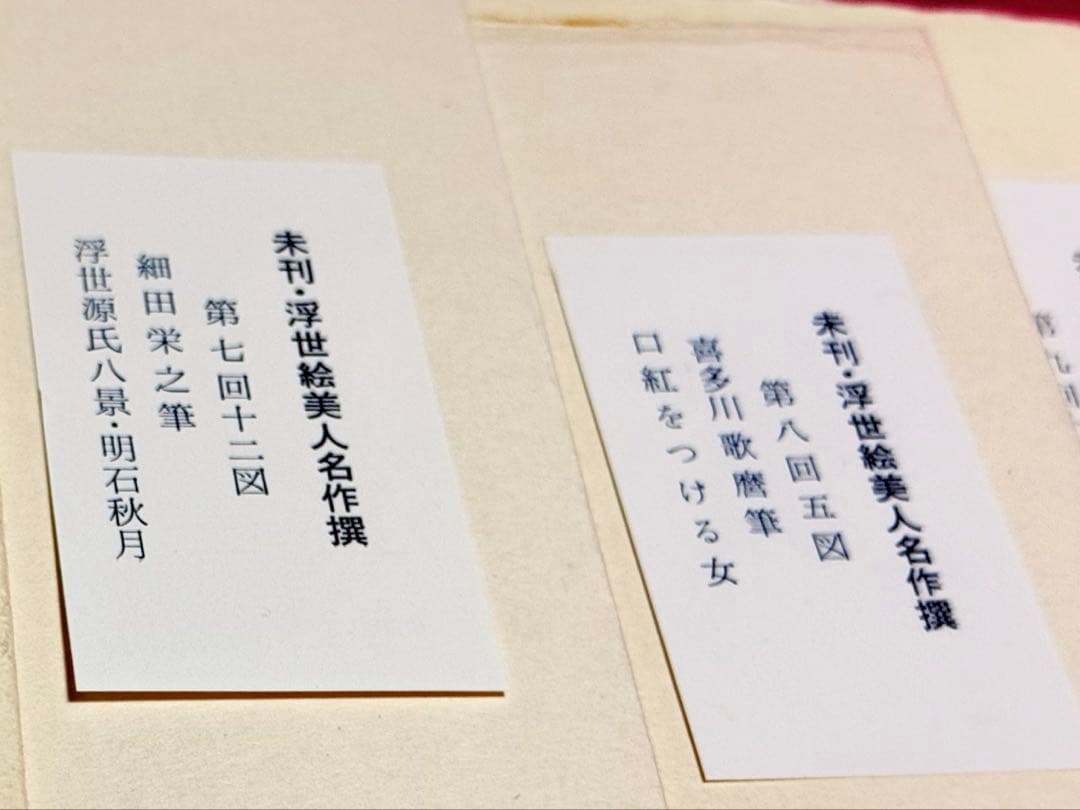 未刊・浮世絵美人名作撰
第七回十二図
細田栄之筆
浮世源氏八景・明石秋月
未刊・浮世絵美人名作撰
第八回五図
喜多川歌麿筆
口紅をつける女